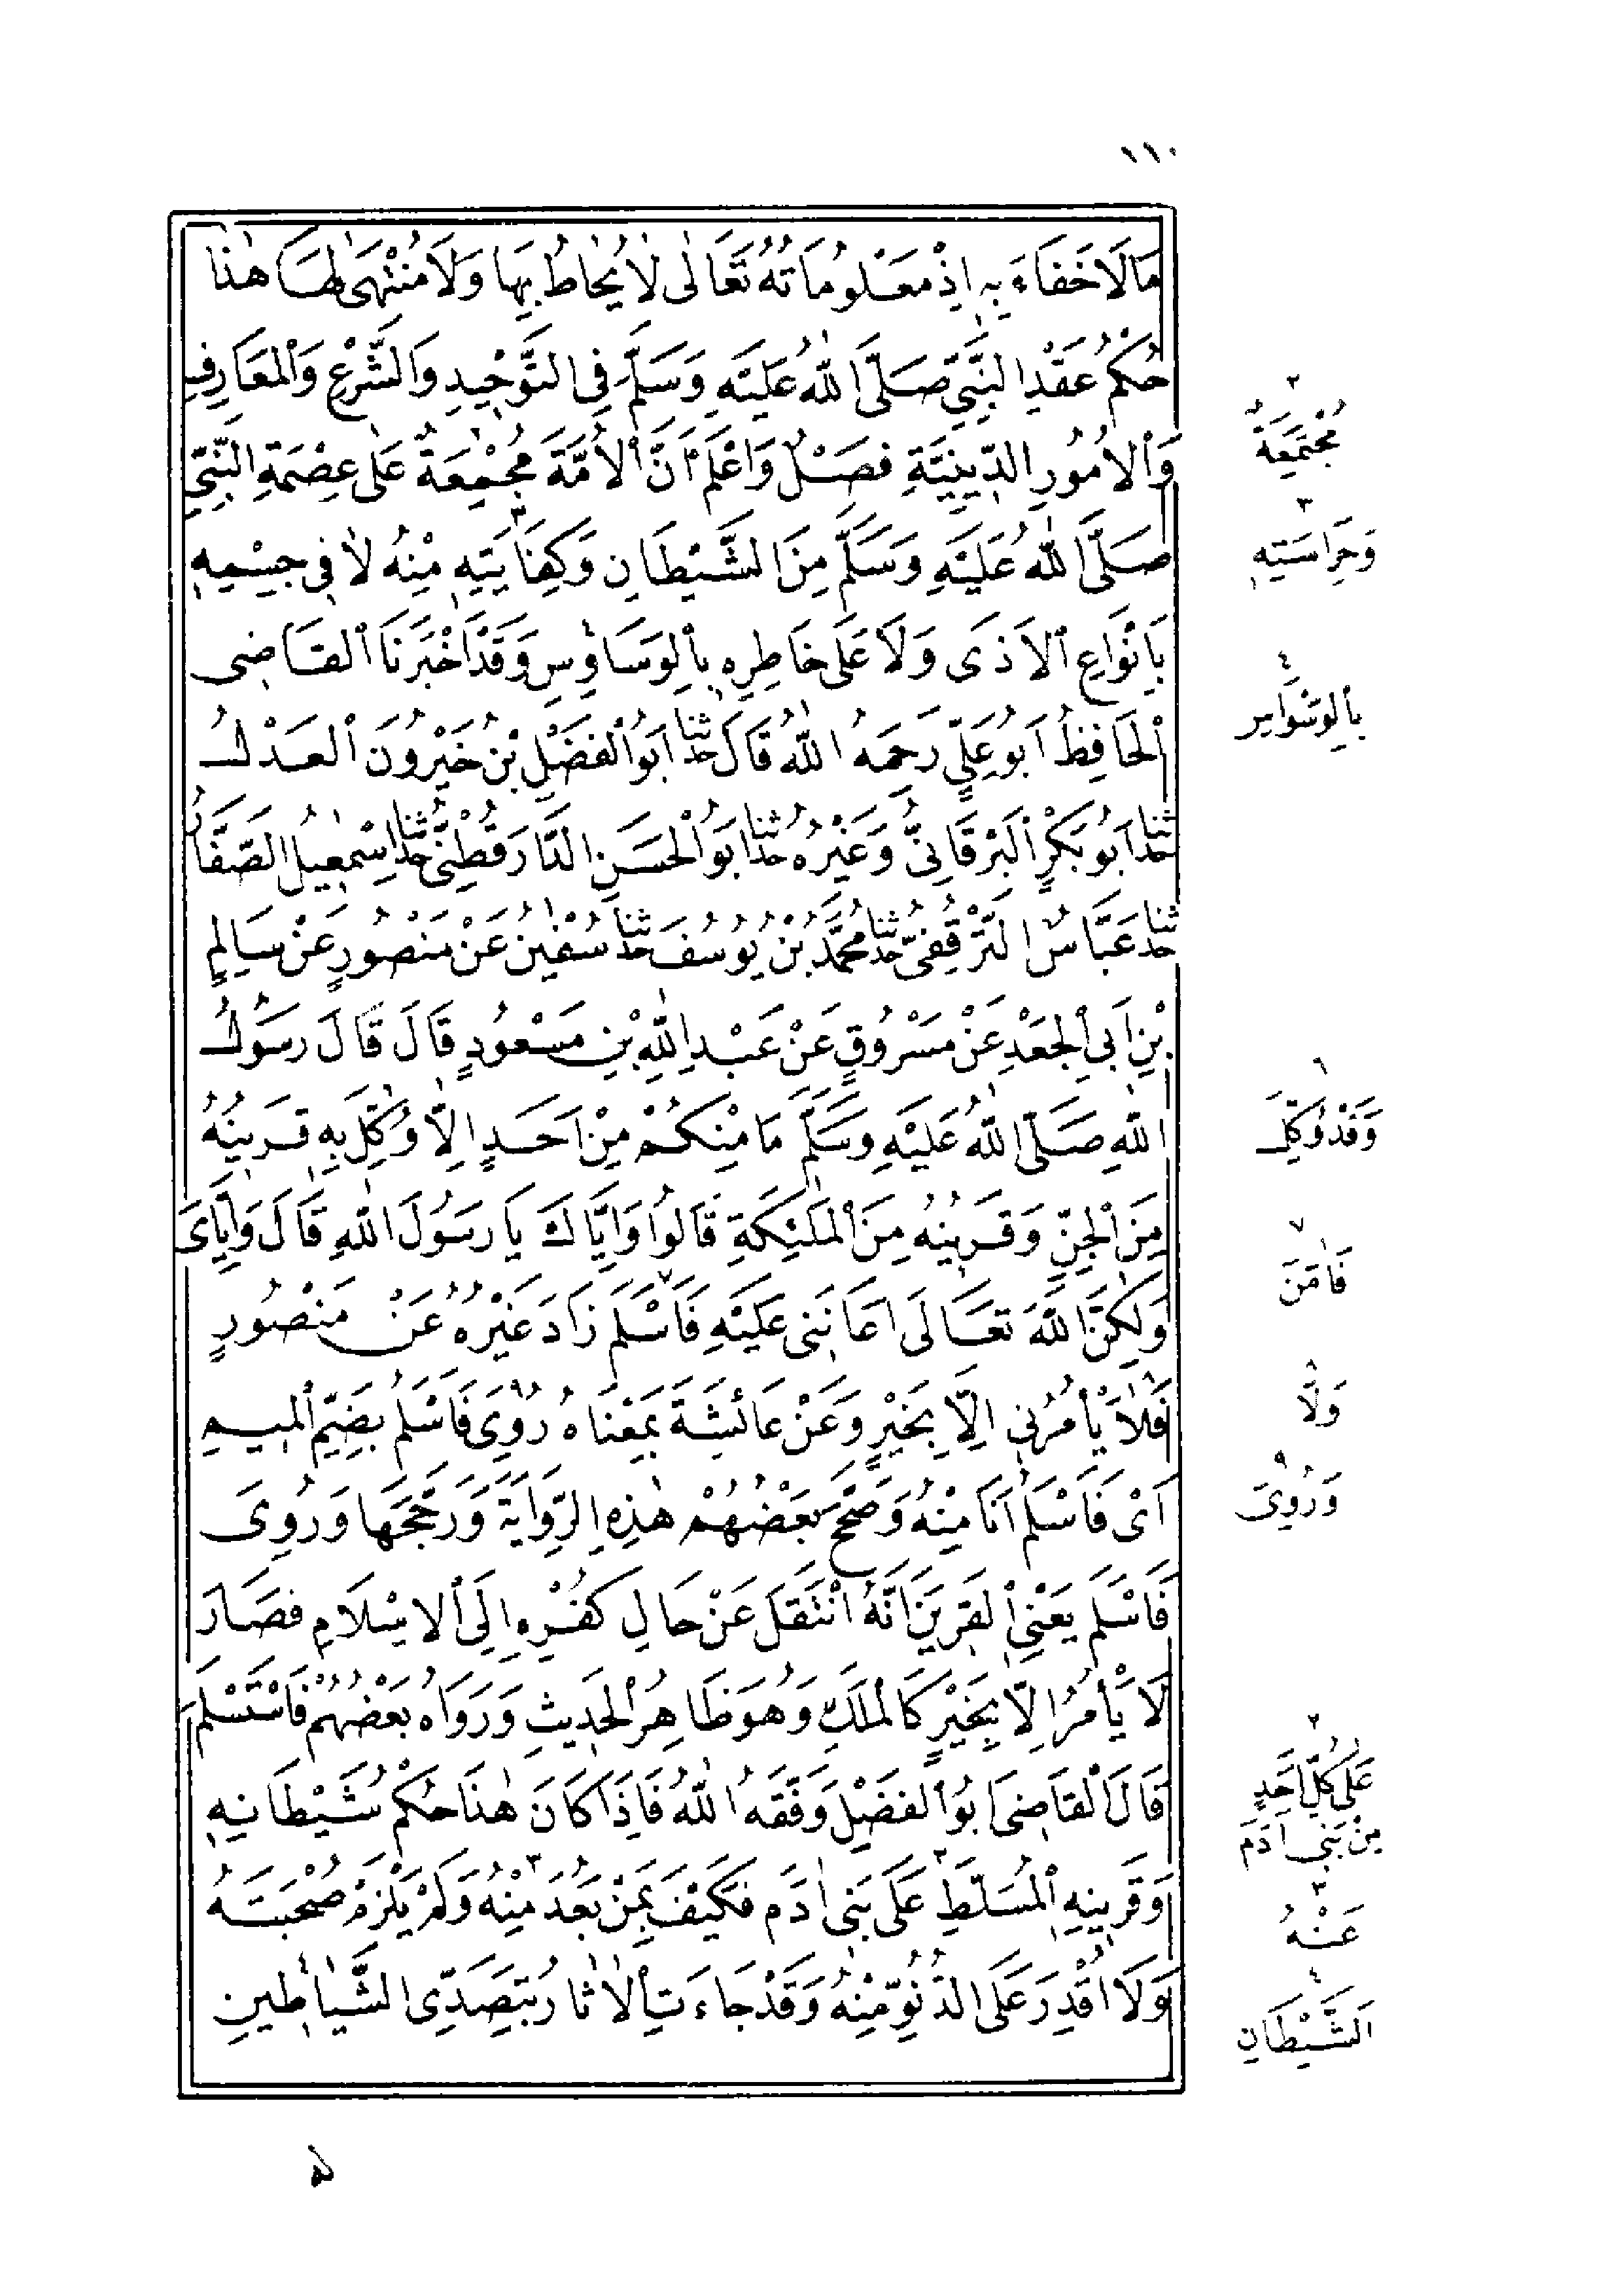 ١١٠
مَا لَا خَفَاءَ بِهِ إِذْ مَعْلُومَاتُهُ تَعَالٰى لَا يُحَاطُ بِهَا وَلَا مُنْتَهٰى لَهَا هٰذَا
حُكْمُ عَقْدِ النَّبِيِّ صَلَّى اللّٰهُ عَلَيْهِ وَسَلَّمَ فِي التَّوْحِيدِ وَالشَّرْعِ وَالْمَعَارِفِ
وَالْأُمُورِ الدِّينِيَّةِ فَصْلٌ وَاعْلَمْ أَنَّ الْأُمَّةَ مُجْمِعَةٌ عَلٰى عِصْمَةِ النَّبِيِّ
صَلَّى اللّٰهُ عَلَيْهِ وَسَلَّمَ مِنَ الشَّيْطَانِ وَكِفَايَتِهِ مِنْهُ لَا فِي جِسْمِهِ
بِأَنْوَاعِ الْأَذَى وَلَا عَلَى خَاطِرِهِ بِالْوَسَاوِسِ وَقَدْ أَخْبَرَنَا الْقَاضِى
الْحَافِظُ أَبُو عَلِيٍّ رَحِمَهُ اللّٰهُ قَالَ حَدَّثَنَا أَبُو الْفَضْلِ بْنُ خَيْرُونَ الْعَدْلُ
حَدَّثَنَا أَبُو بَكْرٍ الْبَرْقَانِيُّ وَغَيْرُهُ حَدَّثَنَا أَبُو الْحَسَنِ الدَّارَقُطْنِيُّ حَدَّثَنَا إِسْمٰعِيلُ الصَّفَّارُ
حَدَّثَنَا عَبَّاسٌ التَّرْقُفِيُّ حَدَّثَنَا مُحَمَّدُ بْنُ يُوسُفَ حَدَّثَنَا سُفْيٰنُ عَنْ مَنْصُورٍ عَنْ سَالِمِ
بْنِ أَبِي الْجَعْدِ عَنْ مَسْرُوقٍ عَنْ عَبْدِ اللّٰهِ بْنِ مَسْعُودٍ قَالَ قَالَ رَسُولُ
اللّٰهِ صَلَّى اللّٰهُ عَلَيْهِ وَسَلَّمَ مَا مِنْكُمْ مِنْ أَحَدٍ إِلَّا وُكِّلَ بِهِ قَرِينُهُ
مِنَ الْجِنِّ وَقَرِينُهُ مِنَ الْمَلَئِكَةِ قَالُوا وَإِيَّاكَ يَا رَسُولَ اللّٰهِ قَالَ وَإِيَّاىَ
وَلَكِنَّ اللّٰهَ تَعَالَى أَعَانَنِى عَلَيْهِ فَأَسْلَمَ زَادَ غَيْرُهُ عَنْ مَنْصُورٍ
فَلَا يَأْمُرُنِى إِلَّا بِخَيْرٍ وَعَنْ عَائِشَةَ بِمَعْنَاهُ رُوِىَ فَأَسْلَمُ بِضَمِّ الْمِيمِ
أَىْ فَأَسْلَمُ أَنَا مِنْهُ وَصَحَّحَ بَعْضُهُمْ هٰذِهِ الرِّوَايَةَ وَرَجَّحَهَا وَرُوِىَ
فَأَسْلَمَ يَعْنِى الْقَرِينَ أَنَّهُ انْتَقَلَ عَنْ حَالِ كُفْرِهِ إِلَى الْإِسْلَامِ فَصَارَ
لَا يَأْمُرُ إِلَّا بِخَيْرٍ كَالْمَلَكِ وَهُوَ ظَاهِرُ الْحَدِيثِ وَرَوَاهُ بَعْضُهُمْ فَاسْتَسْلَمَ
قَالَ الْقَاضِى أَبُو الْفَضْلِ وَفَّقَهُ اللّٰهُ فَإِذَا كَانَ هٰذَا حُكْمُ شَيْطَانِهِ
وَقَرِينِهِ الْمُسَلَّطِ عَلَى بَنِى اٰدَمَ فَكَيْفَ بِمَنْ بَعُدَ مِنْهُ وَلَمْ يَلْزَمْ صُحْبَتَهُ
وَلَا أُقْدِرَ عَلَى الدُّنُوِّ مِنْهُ وَقَدْ جَاءَتِ الْأٰثَارُ بِتَصَدِّى الشَّيَاطِينِ
٢
مُجْتَمِعَةٌ
٣
وَحِرَاسَتِهِ
٤
بِالْوَسْوَاسِ
٦
وَقَدْ وُكِّلَ
٧
فَاٰمَنَ
٨
وَلَا
٩
وَرُوِىَ
٢
عَلٰى كُلِّ أَحَدٍ
مِنْ بَنِى اٰدَمَ
٣
عَنْهُ
٤
الشَّيْطَانِ